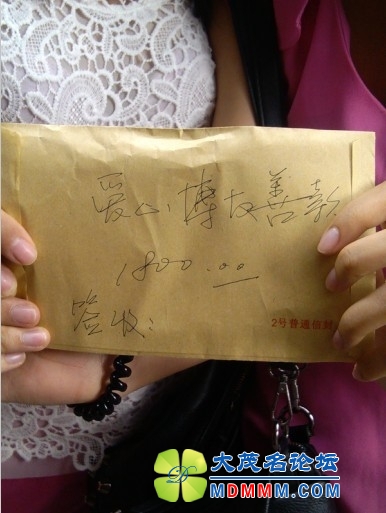 爱心博友善款
1800.00
签收:
2号普通信封
大茂名论坛
MDMMM.COM